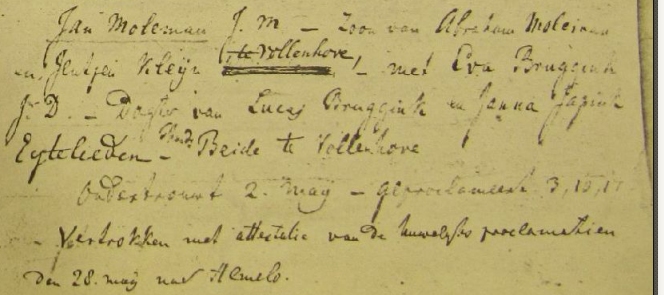 Jan Moleman J. M – Zoon van Abraham Moleman
en Jentjen Kleijn, te Vollenhove, – met Eva Bruggink
J. D. – Dogter van Lucas Bruggink en Janna Japink
Eijtelieden – Beide te Vollenhove
Ondertrouwt 2. May – geproclameert 3, 10, 17
– Vertrokken met attestatie van de huwelyks proclamatien
den 28. may naar Almelo.